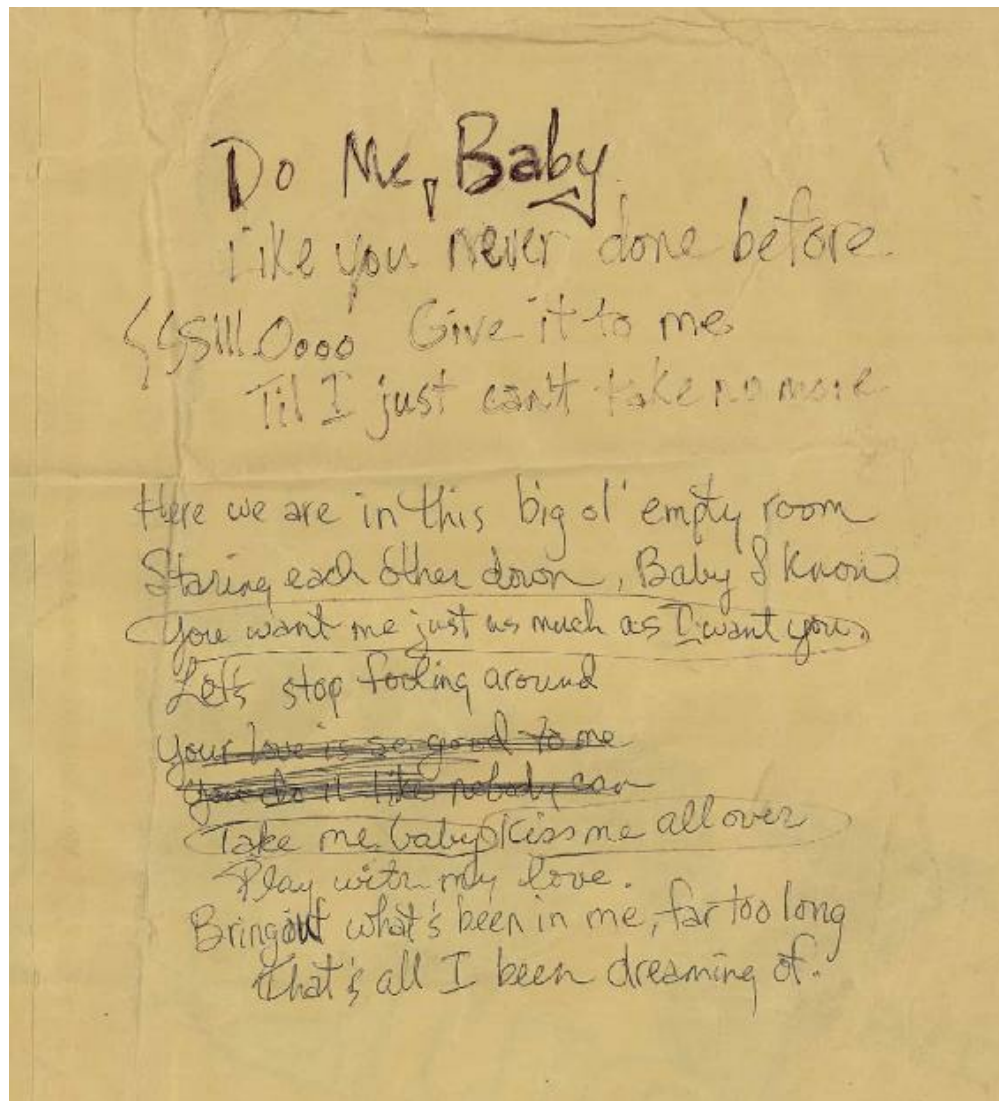 Do Me, Baby
Like you never done before.
Give it to me
Til I just can't take no more
Here we are in this big ol' empty room
Staring each other down, Baby I know
You want me just as much as I want you.
Let's stop fooling around
Your love is so good to me
You do it like nobody can
Take me baby Kiss me all over
Play with my love.
Bring out what's been in me, far too long
that's all I been dreaming of.